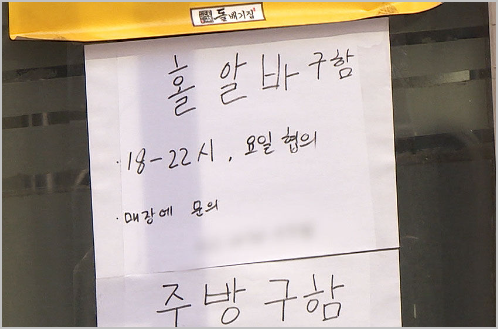 돌배기집
홀 알바 구함
· 18-22시, 요일 협의
· 매장에 문의
주방 구함